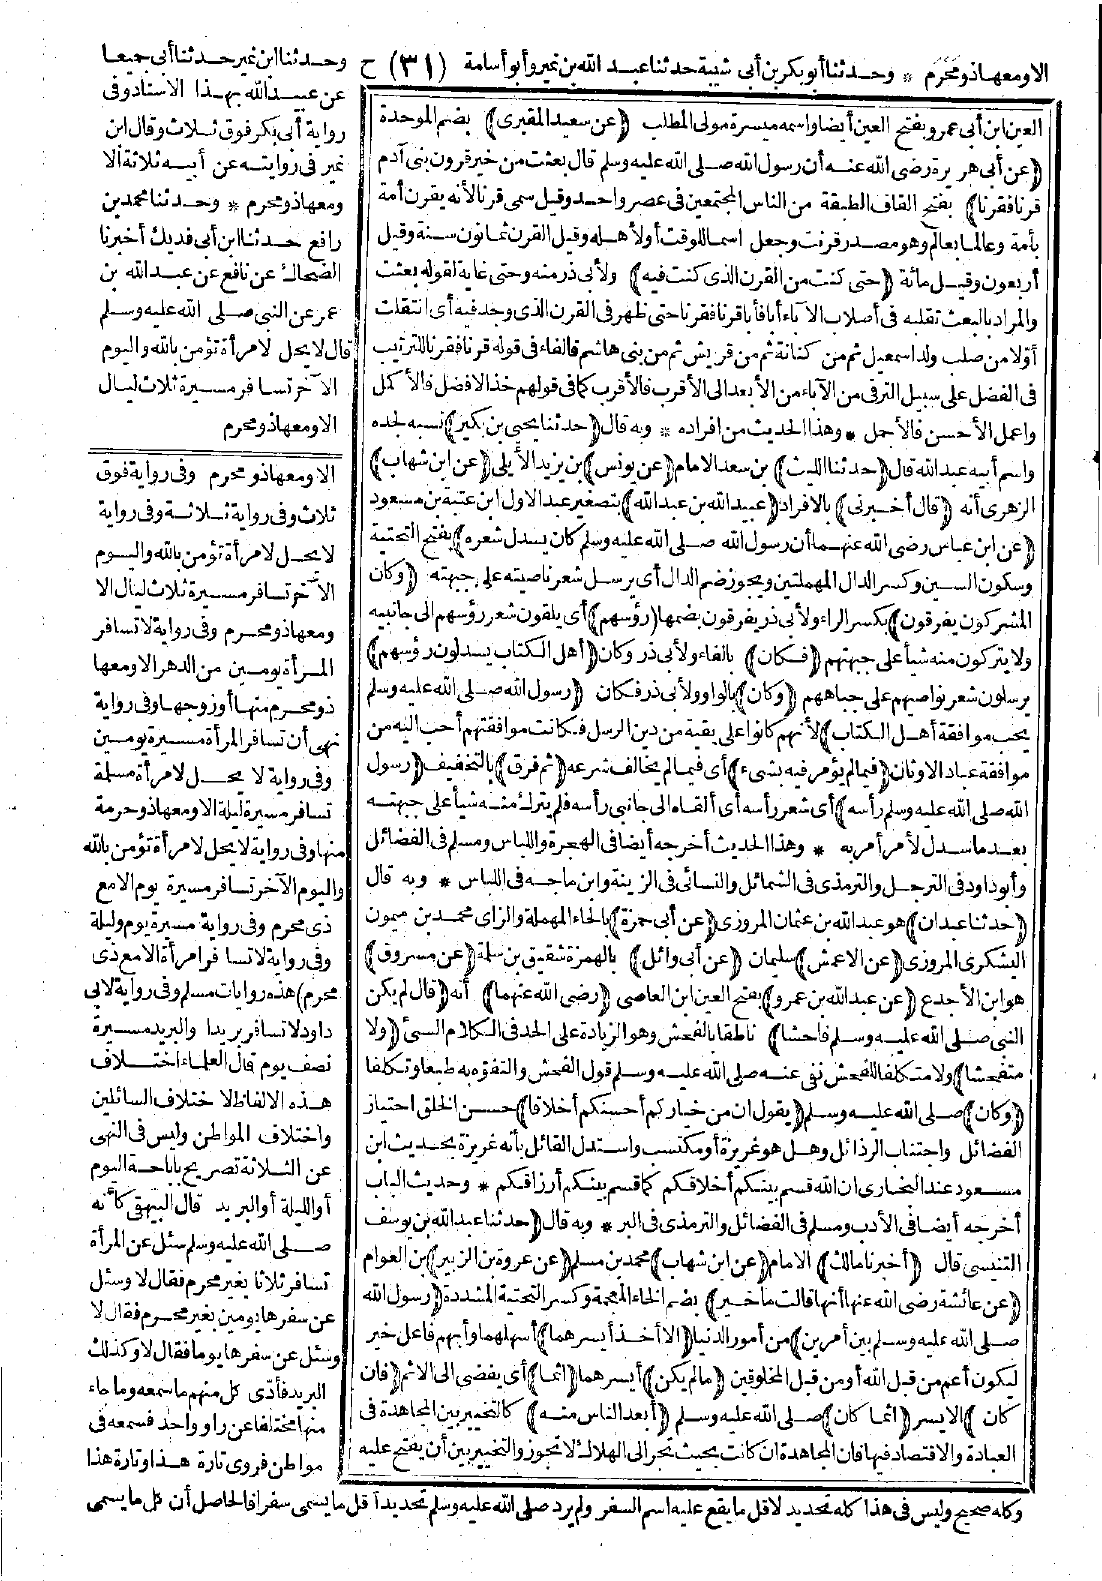 الا ومعها ذو محرم * وحدثنا أبو بكر بن أبى شيبة حدثنا عبد الله بن نمير وأبو أسامة (٣١) ح وحدثنا ابن نمير حدثنا أبى جميعا
العين ابن أبى عمرو بفتح العين أيضا واسمه ميسرة مولى المطلب (عن سعيد المقبرى) بضم الموحدة
(عن أبى هريرة رضى الله عنه أن رسول الله صلى الله عليه وسلم قال بعثت من خير قرون بنى آدم
قرنا فقرنا) بفتح القاف الطبقة من الناس المجتمعين فى عصر واحد وقيل سمى قرنا لأنه يقرن أمة
بأمة وعالما بعالم وهو مصدر قرنت وجعل اسما للوقت أو لأهله وقيل القرن ثمانون سنة وقيل
أربعون وقيل مائة (حتى كنت من القرن الذى كنت فيه) ولأبى ذر منه وحتى غاية لقوله بعثت
والمراد بالبعث تقلبه فى أصلاب الآباء أبا فأبا قرنا فقرنا حتى ظهر فى القرن الذى وجد فيه أى انتقلت
أولا من صلب ولد اسمعيل ثم من كنانة ثم من قريش ثم من بنى هاشم فالفاء فى قوله قرنا فقرنا للترتيب
فى الفضل على سبيل الترقى من الآباء من الأبعد الى الأقرب فالأقرب كما فى قولهم خذ الافضل فالأكمل
واعمل الأحسن فالأجمل * وهذا الحديث من افراده * وبه قال (حدثنا يحيى بن بكير) نسبه لجده
واسم أبيه عبد الله قال (حدثنا الليث) بن سعد الامام (عن يونس) بن يزيد الأيلى (عن ابن شهاب)
الزهرى أنه (قال أخبرنى) بالافراد (عبيد الله بن عبد الله) بتصغير عبد الاول ابن عتبة بن مسعود
(عن ابن عباس رضى الله عنهما أن رسول الله صلى الله عليه وسلم كان يسدل شعره) بفتح التحتية
وسكون السين وكسر الدال المهملتين ويجوز ضم الدال أى يرسل شعر ناصيته على جبهته (وكان
المشركون يفرقون) بكسر الراء ولأبى ذر يفرقون بضمها (رؤسهم) أى يلقون شعر رؤسهم الى جانبيه
ولا يتركون منه شيأ على جبهتهم (فكان) بالفاء ولأبى ذر وكان (أهل الكتاب يسدلون رؤسهم)
يرسلون شعر نواصيهم على جباههم (وكان) بالواو ولأبى ذر فكان (رسول الله صلى الله عليه وسلم
يحب موافقة أهل الكتاب) لأنهم كانوا على بقية من دين الرسل فكانت موافقتهم أحب اليه من
موافقة عباد الاوثان (فيما لم يؤمر فيه بشىء) أى فيما لم يخالف شرعه (ثم فرق) بالتخفيف (رسول
الله صلى الله عليه وسلم رأسه) أى شعر رأسه أى ألقاه الى جانبى رأسه فلم يترك منه شيأ على جبهته
بعد ما سدل لأمر أمر به * وهذا الحديث أخرجه أيضا فى الهجرة واللباس ومسلم فى الفضائل
وأبو داود فى الترجل والترمذى فى الشمائل والنسائى فى الزينة وابن ماجه فى اللباس * وبه قال
(حدثنا عبدان) هو عبد الله بن عثمان المروزى (عن أبى حمزة) بالحاء المهملة والزاى محمد بن ميمون
اليشكرى المروزى (عن الاعمش) سليمان (عن أبى وائل) بالهمزة شقيق بن سلمة (عن مسروق)
هو ابن الأجدع (عن عبد الله بن عمرو) بفتح العين ابن العاصى (رضى الله عنهما) أنه (قال لم يكن
النبى صلى الله عليه وسلم فاحشا) ناطقا بالفحش وهو الزيادة على الحد فى الكلام السيئ (ولا
متفحشا) ولا متكلفا للفحش نفى عنه صلى الله عليه وسلم قول الفحش والتفوه به طبعا وتكلفا
(وكان) صلى الله عليه وسلم (يقول ان من خياركم أحسنكم أخلاقا) حسن الخلق اختيار
الفضائل واجتناب الرذائل وهل هو غريزة أو مكتسب واستدل القائل بأنه غريزة بحديث ابن
مسعود عند البخارى ان الله قسم بينكم أخلاقكم كما قسم بينكم أرزاقكم * وحديث الباب
أخرجه أيضا فى الأدب ومسلم فى الفضائل والترمذى فى البر * وبه قال (حدثنا عبد الله بن يوسف
التنيسى قال (أخبرنا مالك) الامام (عن ابن شهاب) محمد بن مسلم (عن عروة بن الزبير) بن العوام
(عن عائشة رضى الله عنها أنها قالت ما خير) بضم الخاء المعجمة وكسر التحتية المشددة (رسول الله
صلى الله عليه وسلم بين أمرين) من أمور الدنيا (الا أخذ أيسرهما) أسهلهما وأبهم فاعل خير
ليكون أعم من قبل الله أو من قبل المخلوقين (مالم يكن) أيسرهما (اثما) أى يفضى الى الاثم (فان
كان) الايسر (اثما كان) صلى الله عليه وسلم (أبعد الناس منه) كالتخيير بين المجاهدة فى
العبادة والاقتصاد فيها فان المجاهدة ان كانت بحيث تجر الى الهلاك لا تجوز والتخيير بين أن يفتح عليه
عن عبيد الله بهذا الاسناد وفى
رواية أبى بكر فوق ثلاث وقال ابن
نمير فى روايته عن أبيه ثلاثة الا
ومعها ذو محرم * وحدثنا محمد بن
رافع حدثنا ابن أبى فديك أخبرنا
الضحاك عن نافع عن عبد الله بن
عمر عن النبى صلى الله عليه وسلم
قال لا يحل لامرأة تؤمن بالله واليوم
الآخر تسافر مسيرة ثلاث ليال
الا ومعها ذو محرم
الا ومعها ذو محرم وفى رواية فوق
ثلاث وفى رواية ثلاثة وفى رواية
لا يحل لامرأة تؤمن بالله واليوم
الآخر تسافر مسيرة ثلاث ليال الا
ومعها ذو محرم وفى رواية لا تسافر
المرأة يومين من الدهر الا ومعها
ذو محرم منها أو زوجها وفى رواية
نهى أن تسافر المرأة مسيرة يومين
وفى رواية لا يحل لامرأة مسلمة
تسافر مسيرة ليلة الا ومعها ذو حرمة
منها وفى رواية لا يحل لامرأة تؤمن بالله
واليوم الآخر تسافر مسيرة يوم الا مع
ذى محرم وفى رواية مسيرة يوم وليلة
وفى رواية لا تسافر امرأة الا مع ذى
محرم) هذه روايات مسلم وفى رواية لابى
داود لا تسافر بريدا والبريد مسيرة
نصف يوم قال العلماء اختلاف
هذه الالفاظ لاختلاف السائلين
واختلاف المواطن وليس فى النهى
عن الثلاثة تصريح باباحة اليوم
أو الليلة أو البريد قال البيهقى كأنه
صلى الله عليه وسلم سئل عن المرأة
تسافر ثلاثا بغير محرم فقال لا وسئل
عن سفرها يومين بغير محرم فقال لا
وسئل عن سفرها يوما فقال لا وكذلك
البريد فأدى كل منهم ما سمعه وما جاء
منها مختلفا عن راو واحد فسمعه فى
مواطن فروى تارة هذا وتارة هذا
وكله صحيح وليس فى هذا كله تحديد لاقل ما يقع عليه اسم السفر ولم يرد صلى الله عليه وسلم تحديد أقل ما يسمى سفرا فالحاصل أن كل ما يسمى